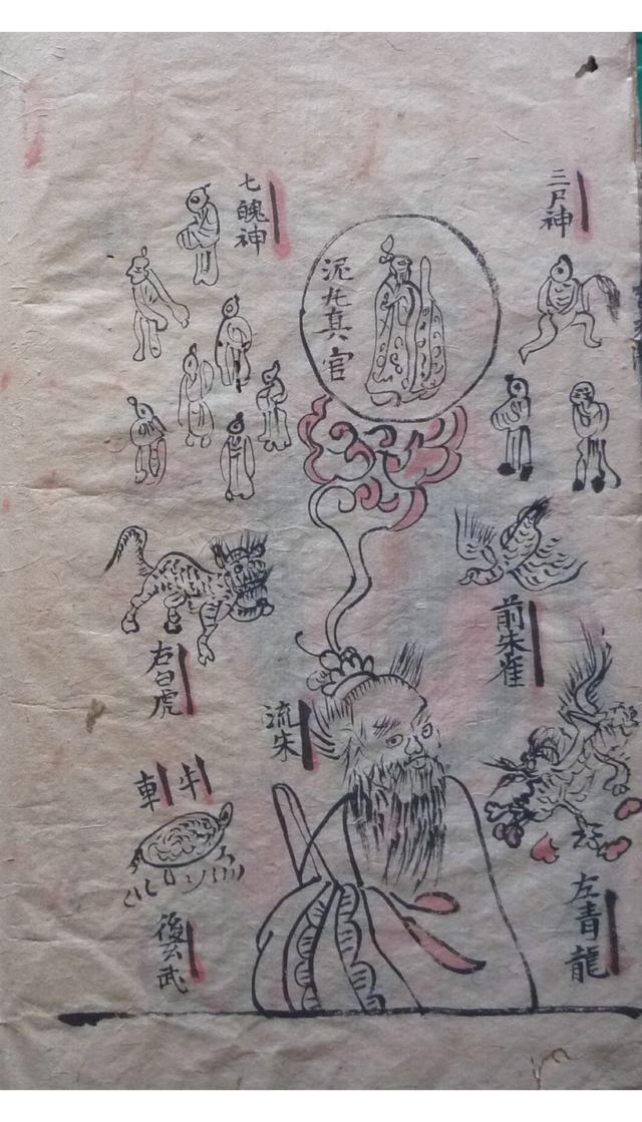 三尸神
七魄神
泥丸真官
前朱雀
右白虎
流朱
牛
車
左青龍
後玄武